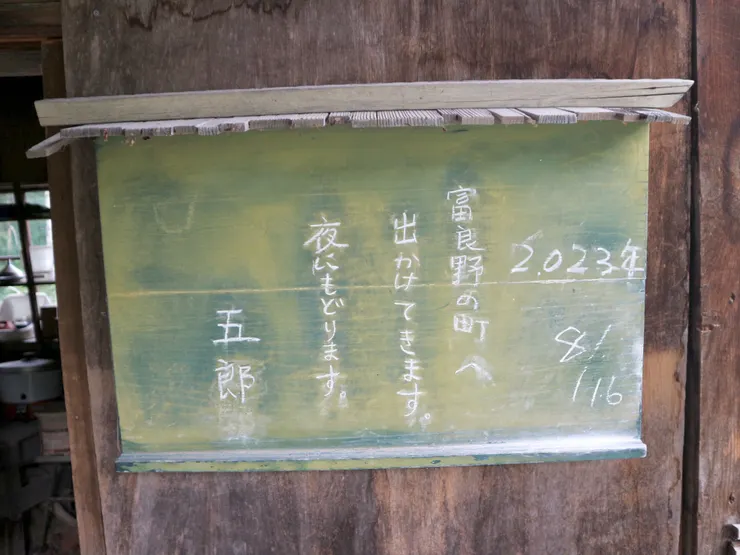 2023年
8/16
富良野の町へ
出かけてきます。
夜にもどります。
五郎